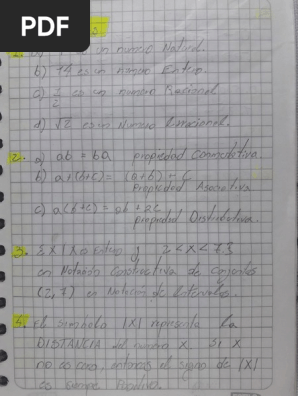 PDF
1. a) es un numero Natural.
b) -14 es un numero Entero.
c) 1/2 es un numero Racional
d) √2 es un Numero Irracional.
2. a) ab = ba propiedad Conmutativa.
b) a+(b+c)= (a+b)+c
Propiedad Asociativa
c) a(b+c) = ab + ac
propiedad Distributiva.
3. es Entero y 2<x<7}
en Notación Constructiva de Conjuntos
(2,7) en Notación de Intervalos.
4. el simbolo |x| representa la
DISTANCIA del numero X. Si X
no es cero, entonces el signo de |X|
es siempre Positivo.